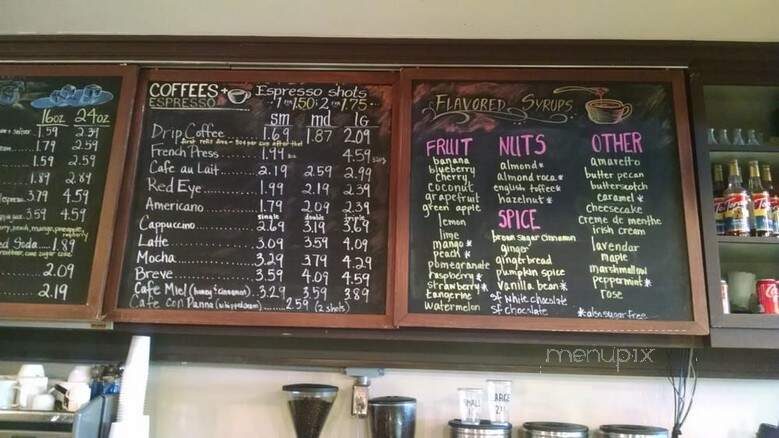 16oz 24oz
1.59 2.39
1.79 2.59
1.59 2.59
1.89 2.89
3.79 4.59
3.59 4.59
1.89
2.09
2.19
COFFEES +
ESPRESSO
Espresso shots
1 1.50 2 1.75
sm md lg
Drip Coffee 1.69 1.87 2.09
French Press 1.99 4.59
Cafe au Lait 2.19 2.59 2.99
Red Eye 1.99 2.19 2.39
Americano 1.79 2.09 2.39
single double triple
Cappuccino 2.69 3.19 3.69
Latte 3.09 3.59 4.09
Mocha 3.29 3.79 4.29
Breve 3.59 4.09 4.59
Cafe Miel (honey + cinnamon) 3.29 3.59 3.89
Cafe Con Panna (whipped cream) 2.59 (2 shots)
FLAVORED SYRUPS
FRUIT
banana
blueberry
cherry
coconut
grapefruit
green apple
lemon
lime
mango*
peach*
pomegranate
raspberry*
strawberry*
tangerine
watermelon
NUTS
almond*
almond roca*
english toffee*
hazelnut*
SPICE
brown sugar cinnamon
ginger
gingerbread
pumpkin spice
vanilla bean*
sf white chocolate
sf chocolate
OTHER
amaretto
butter pecan
butterscotch
caramel*
cheesecake
creme de menthe
irish cream
lavendar
maple
marshmallow
peppermint*
rose
*also sugar free
Torani
menupix